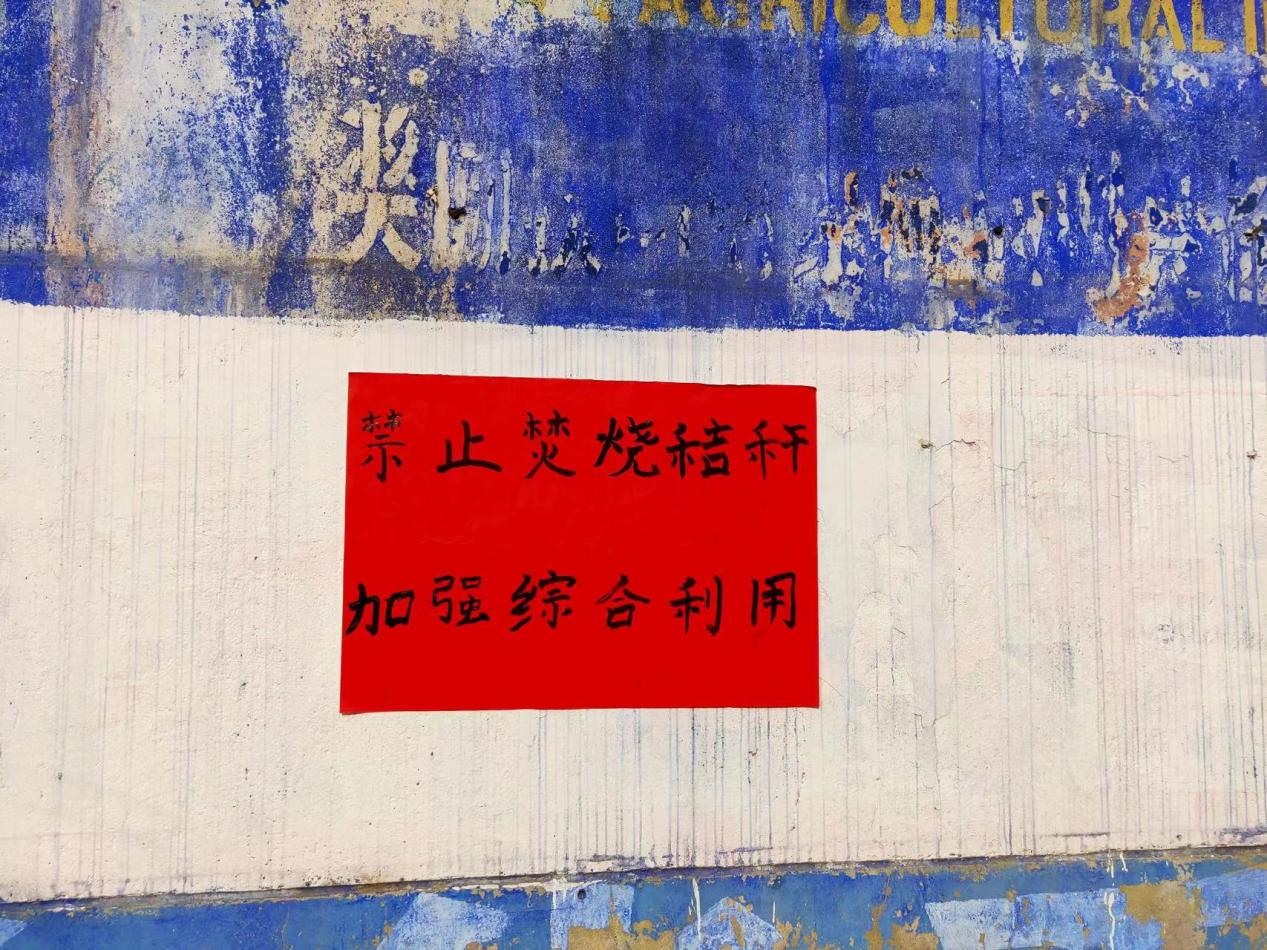 AGRICULTURAL
奖
禁止焚烧秸秆
加强综合利用